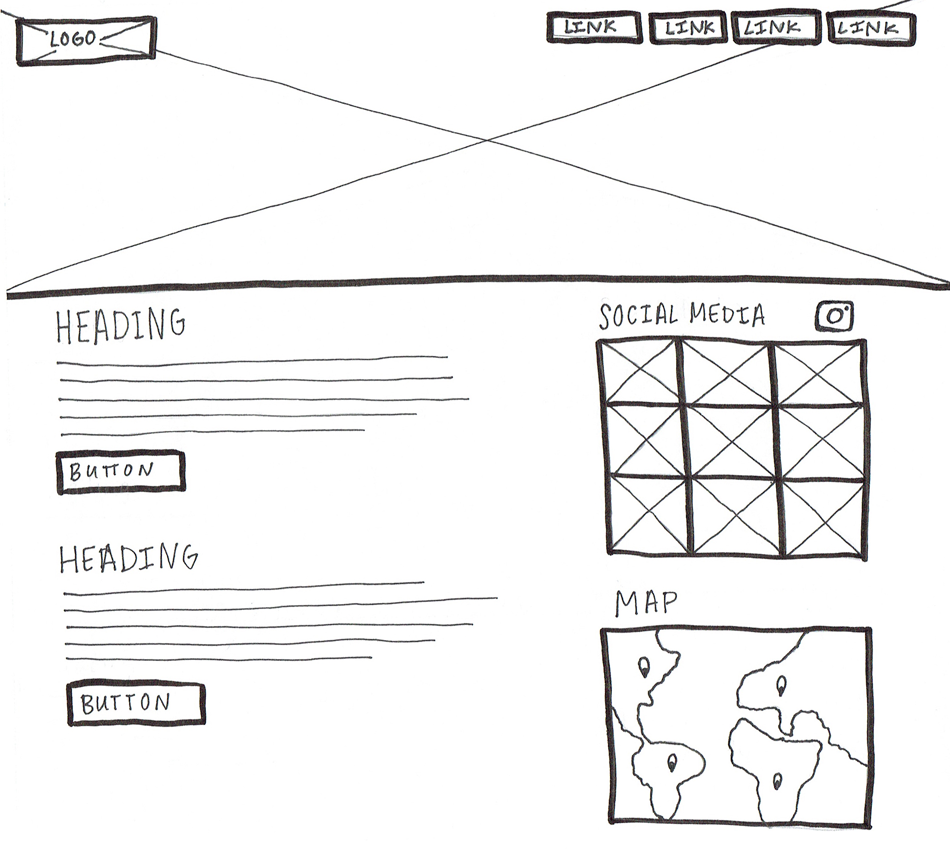 LOGO
LINK LINK LINK LINK
HEADING
BUTTON
HEADING
BUTTON
SOCIAL MEDIA
MAP